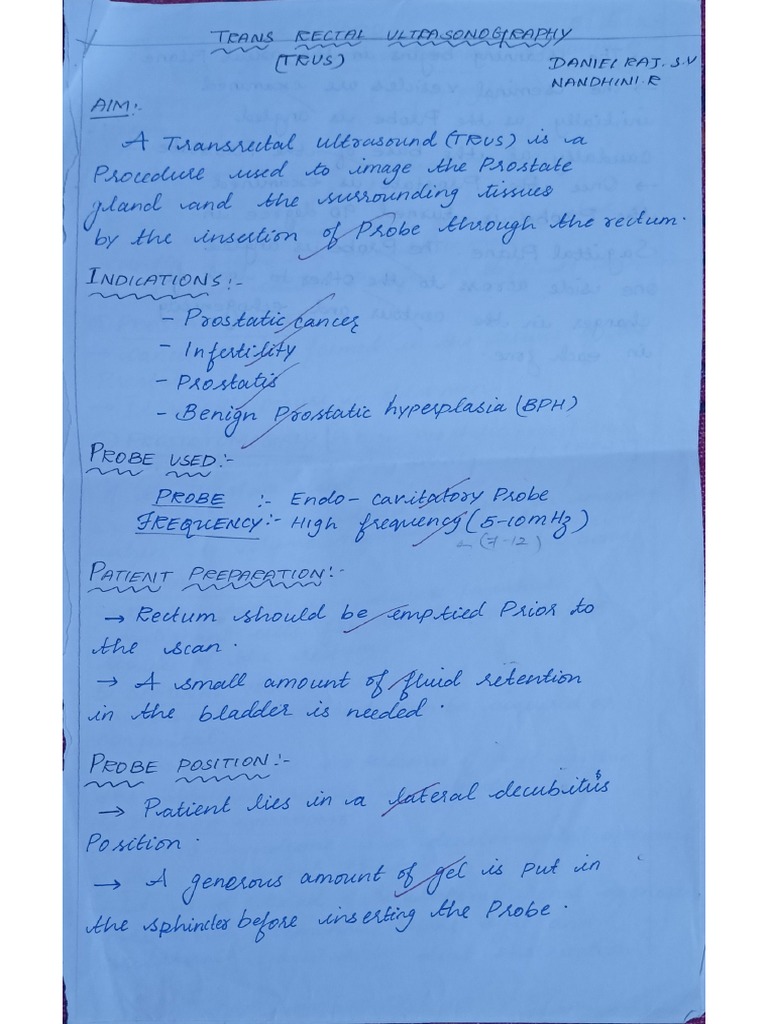 TRANS RECTAL ULTRASONOGRAPHY
(TRUS)
DANIEL RAJ. S.V
NANDHINI.R
AIM:-
A Transrectal ultrasound (TRUS) is a
Procedure used to image the Prostate
gland and the surrounding tissues
by the insertion of Probe through the rectum.
INDICATIONS:-
- Prostatic cancer
- Infertility
- Prostatis
- Benign Prostatic hyperplasia (BPH)
PROBE USED:-
PROBE :- Endo-cavitatory Probe
FREQUENCY:- High frequency (5-10mHz)
- (7-12)
PATIENT PREPARATION:-
→ Rectum should be emptied Prior to
the scan.
→ A small amount of fluid retention
in the bladder is needed.
PROBE POSITION:-
→ Patient lies in a lateral decubitus
Position.
→ A generous amount of gel is put in
the sphincter before inserting the Probe.